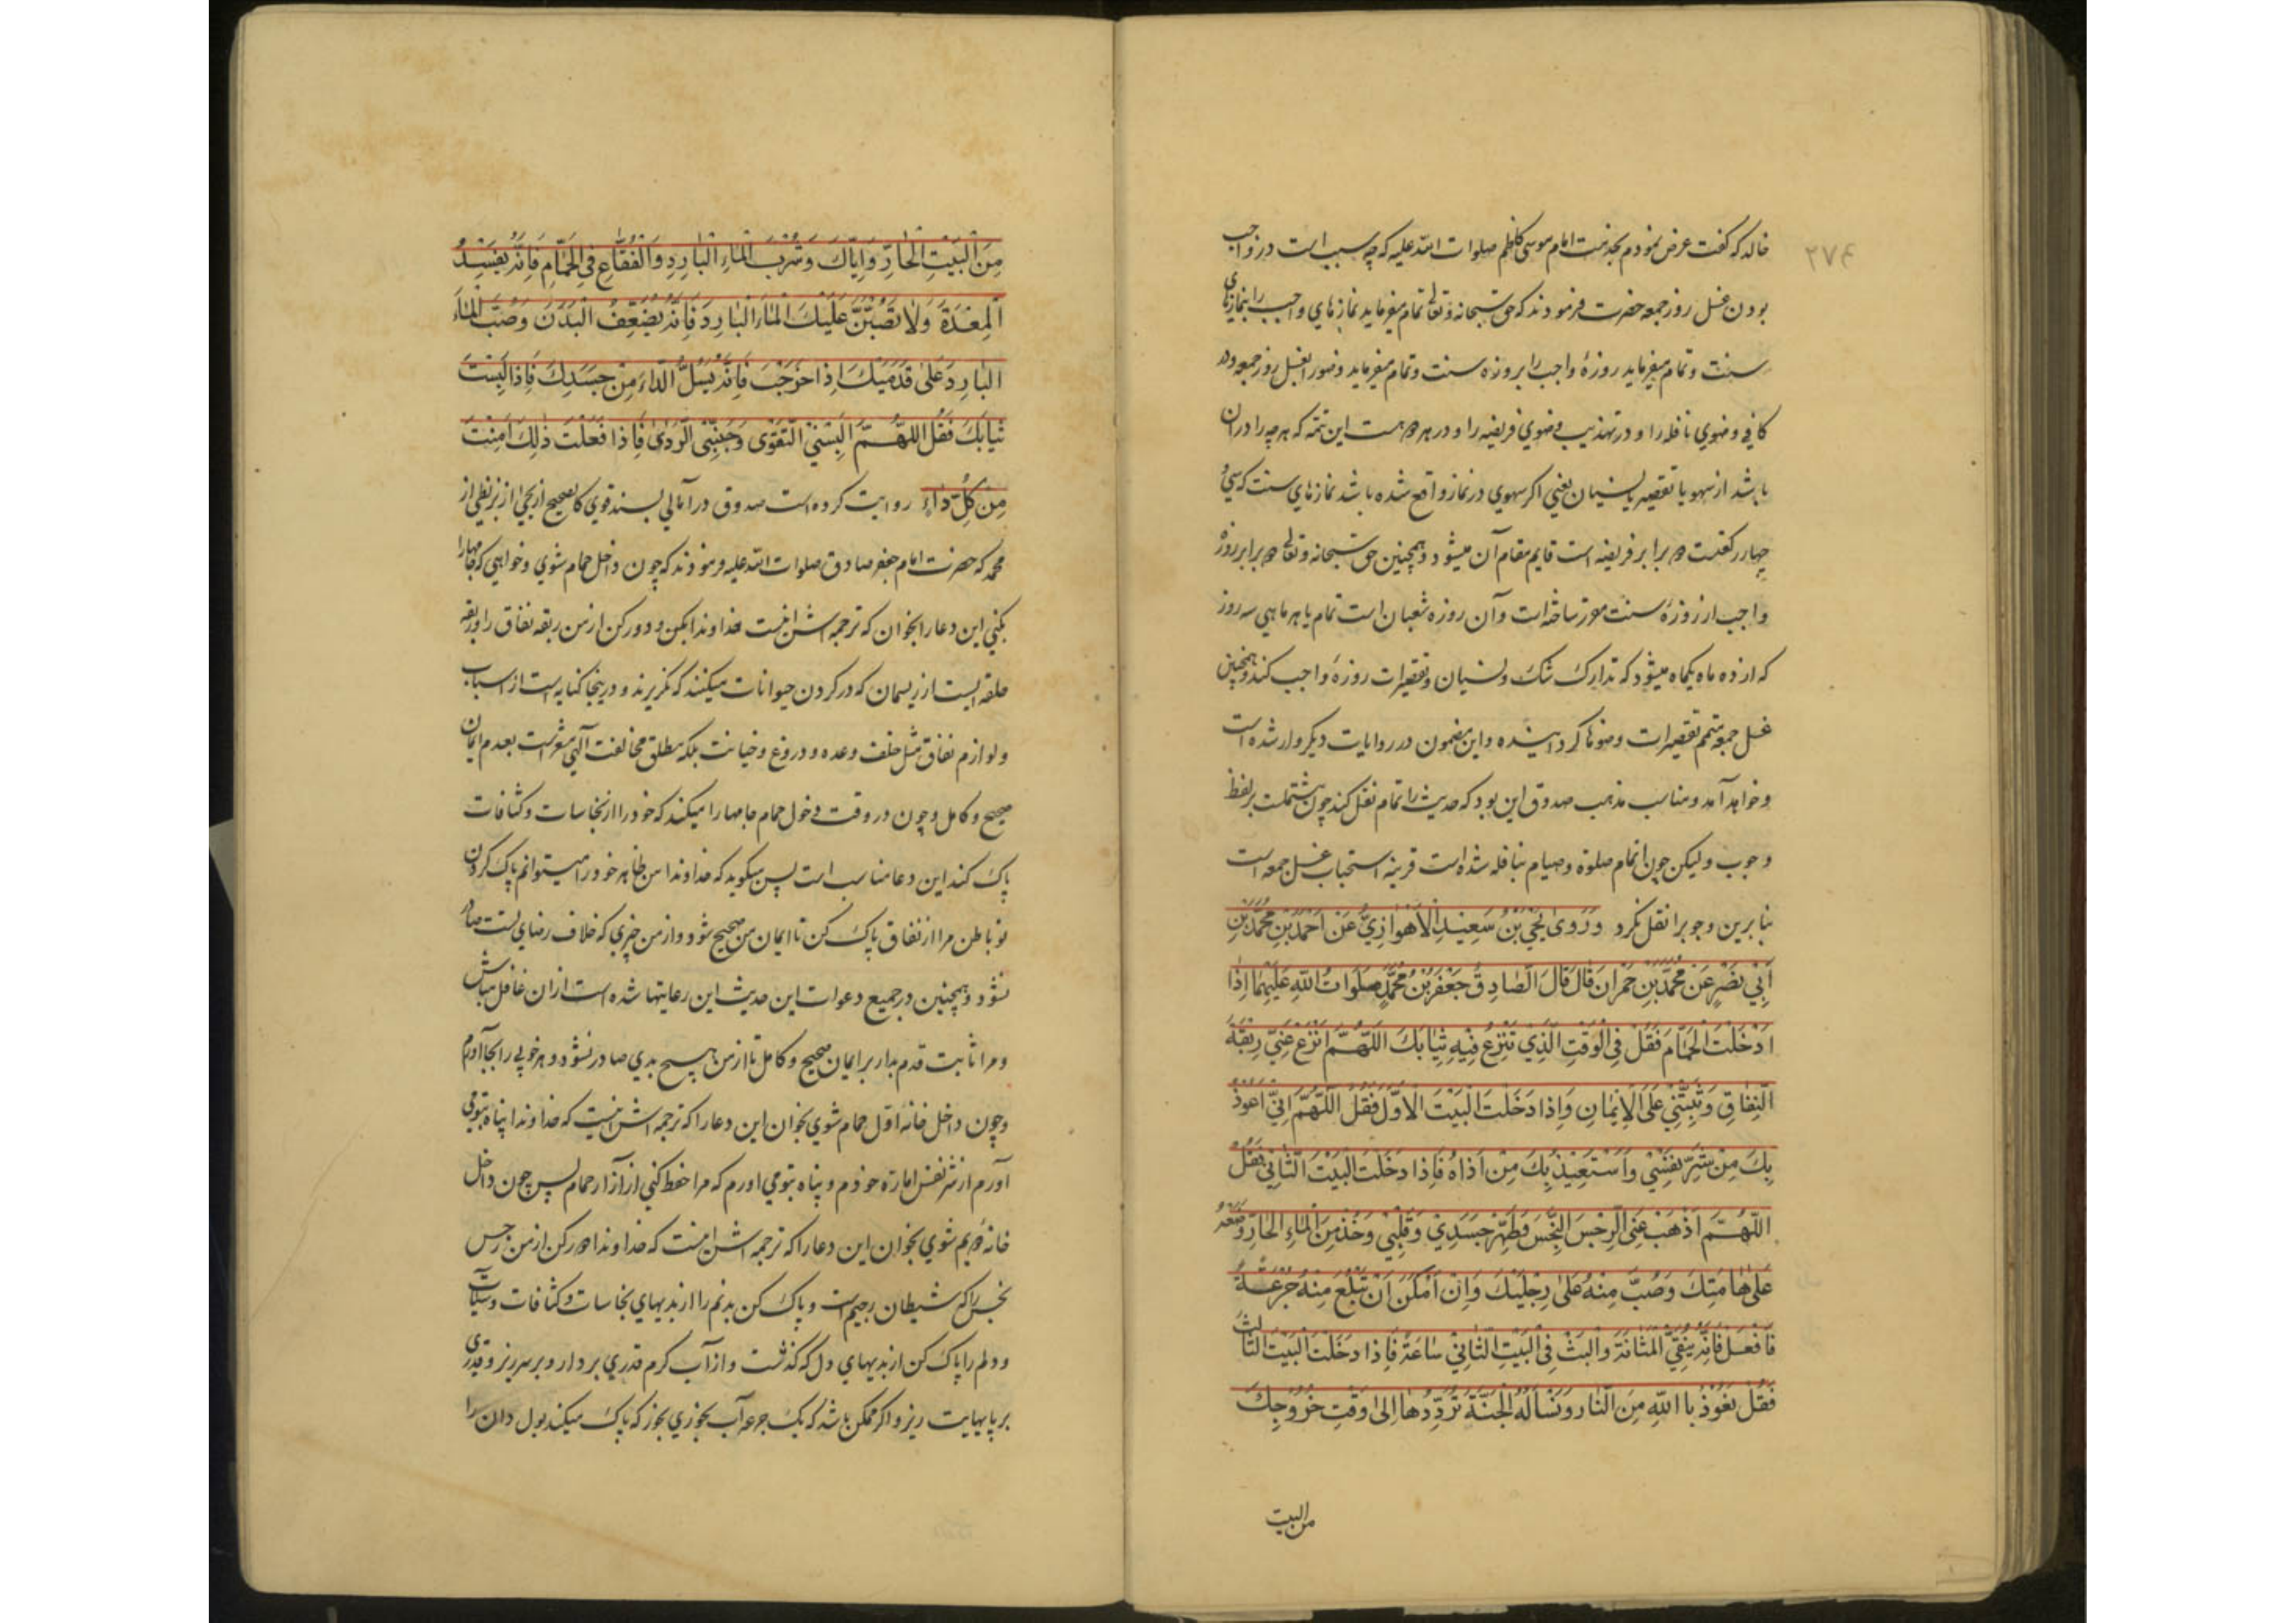 ۲۷۴
خالد که گفت عرض نمودم بخدمت امام موسی کاظم صلوات الله علیه که چه سبب است در واجب
بودن غسل روز جمعه حضرت فرمودند که حق سبحانه و تعالی تمام میفرماید نمازهای واجب را بنمازهای
سنت و تمام میفرماید روزهٔ واجب را بروزه سنت و تمام میفرماید وضو را بغسل روز جمعه و در
کافی وضوی نافله را و در تهذیب وضوی فریضه را و در هر دو هست این تتمه که هر چه را در آن
باشد از سهو یا تقصیر یا نسیان یعنی اکر سهوی در نماز واقع شده باشد نمازهای سنت که سی و
چهار رکعتست دو برابر فریضه است قایم مقام آن میشود و همچنین حق سبحانه و تعالی دو برابر روزهٔ
واجب از روزهٔ سنت مقرر ساخته است و آن روزه شعبان است تمام یا هر ماهی سه روز
که از ده ماه یکماه میشود که تدارک شک و نسیان و تقصیرات روزهٔ واجب کند و همچنین
غسل جمعه متمم تقصیرات وضوها کردانیده و این مضمون در روایات دیکر وارد شده است
و خواهد آمد و مناسب مذهب صدوق این بود که حدیث را تمام نقل کند چون مشتملست بر لفظ
وجوب و لیکن چون اتمام صلوة و صیام بنافله شده است قرینه استحباب غسل جمعه است
بنابرین وجوب را نقل نکرد وَرَوی یَحْیَی بْنُ سَعِیدِ الْاَهْوازِیُّ عَنْ اَحْمَدَ بْنِ مُحَمَّدِ بْنِ
اَبِی نَصْرٍ عَنْ مُحَمَّدِ بْنِ حَمْرانَ قالَ قالَ الصّادِقُ جَعْفَرُ بْنُ مُحَمَّدٍ صَلَواتُ اللهِ عَلَیْهِما اِذا
اَدْخَلْتَ الْحَمّامَ فَقُلْ فِی الْوَقْتِ الَّذِی تَنْزِعُ فِیهِ ثِیابَکَ اَللّهُمَّ انْزَعْ عَنِّی رِبْقَةَ
النِّفاقِ وَثَبِّتْنِی عَلَی الْاِیمانِ وَاِذا دَخَلْتَ الْبَیْتَ الْاَوَّلَ فَقُلْ اَللّهُمَّ اِنِّی اَعُوذُ
بِکَ مِنْ شَرِّ نَفْسِی وَاَسْتَعِیذُ بِکَ مِنْ اَذاهُ فَاِذا دَخَلْتَ الْبَیْتَ الثّانِی فَقُلْ
اَللّهُمَّ اَذْهِبْ عَنِّی الرِّجْسَ النَّجِسَ وَطَهِّرْ جَسَدِی وَقَلْبِی وَخُذْ مِنَ الْماءِ الْحارِّ وَضَعْهُ
عَلی هامَتِکَ وَصُبَّ مِنْهُ عَلی رِجْلَیْکَ وَاِنْ اَمْکَنَ اَنْ تَبْلَعَ مِنْهُ جُرْعَةً
فَافْعَلْ فَاِنَّهُ یُنَقِّی الْمَثانَةَ وَالْبَثْ فِی الْبَیْتِ الثّانِی ساعَةً فَاِذا دَخَلْتَ الْبَیْتَ الثّالِثَ
فَقُلْ نَعُوذُ بِاللهِ مِنَ النّارِ وَنَسْاَلُهُ الْجَنَّةَ تُرَدِّدُها اِلی وَقْتِ خُرُوجِکَ
من البیت
مِنَ الْبَیْتِ الْحارِّ وَاِیّاکَ وَشُرْبَ الْماءِ الْبارِدِ وَالْفُقّاعِ فِی الْحَمّامِ فَاِنَّهُ یُفْسِدُ
الْمِعْدَةَ وَلا تَصُبَّنَّ عَلَیْکَ الْماءَ الْبارِدَ فَاِنَّهُ یُضْعِفُ الْبَدَنَ وَصُبَّ الْماءَ
الْبارِدَ عَلی قَدَمَیْکَ اِذا خَرَجْتَ فَاِنَّهُ یَسُلُّ الدّاءَ مِنْ جَسَدِکَ فَاِذا لَبِسْتَ
ثِیابَکَ فَقُلِ اللّهُمَّ اَلْبِسْنِی التَّقْوی وَجَنِّبْنِی الرَّدی فَاِذا فَعَلْتَ ذلِکَ اَمِنْتَ
مِنْ کُلِّ داءٍ روایت کرده است صدوق در امالی بسند قوی کالصحیح از یحیی از بزنطی از
محمد که حضرت امام جعفر صادق صلوات الله علیه فرمودند که چون داخل حمام شوی و خواهی که جامها را
بکنی این دعا را بخوان که ترجمه اش اینست خداوندا بکن و دور کن از من ربقه نفاق را و ربقه
حلقه ایست از ریسمان که در کردن حیوانات میکنند که نکریزند و درینجا کنایه است از اسباب
و لوازم نفاق مثل خلف وعده و دروغ و خیانت بلکه مطلق مخالفت الهی مشعرست بعدم ایمان
صحیح و کامل و چون در وقت دخول حمام جامها را میکند که خود را از نجاسات و کثافات
پاک کند این دعا مناسب است پس میکوید که خداوندا من ظاهر خود را میتوانم پاک کردن
تو باطن مرا از نفاق پاک کن تا ایمان من صحیح شود و از من چیزی که خلاف رضای تست صادر
نشود و همچنین در جمیع دعوات این حدیث این رعایتها شده است از آن غافل مباش
و مرا ثابت قدم بدار بر ایمان صحیح و کامل تا از من هیچ بدی صادر نشود و هر خوبی را بجا آورم
و چون داخل خانه اول حمام شوی بخوان این دعا را که ترجمه اش اینست که خداوندا پناه بتو می
آورم از شر نفس اماره خودم و پناه بتو می اورم که مرا حفظ کنی از آزار حمام پس چون داخل
خانه دویم شوی بخوان این دعا را که ترجمه اش اینست که خداوندا دور کن از من رجس
نجس را که شیطان رجیم است و پاک کن بدنم را از بدیهای نجاسات و کثافات و سیئات
و دلم را پاک کن از بدیهای دل که کذشت و از آب کرم قدری بردار و بر سر ریز و قدری
بر پایهایت ریز و اکر ممکن باشد که یک جرعه آب بخوری بخور که پاک میکند بول دان را